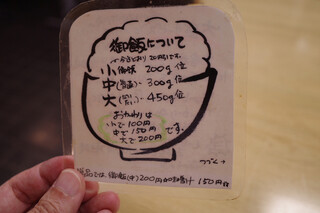 御飯について
小 200g位
中(普通) 300g位
大 450g位
おかわりは
小で100円
中で150円
大で200円 です。
つづく→
単品では、御飯(中)200円 150円